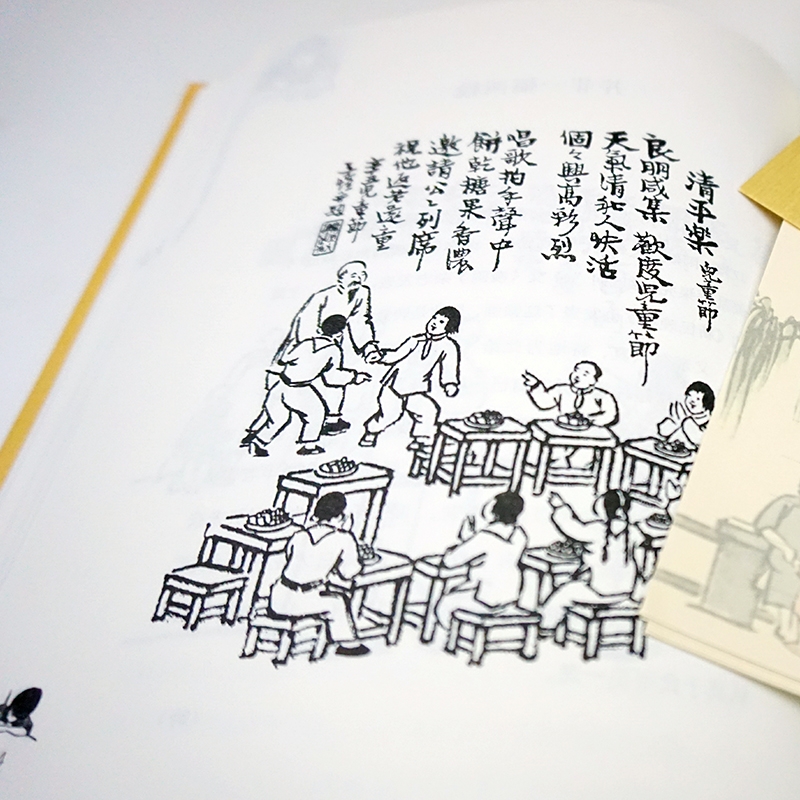 清平樂 兒童節
良朋咸集 歡度兒童節
天氣清和人快活
個々興高彩烈
唱歌拍手聲中
餅乾糖果香濃
邀請公公列席
祝他返老還童
辛丑兒童節
子愷